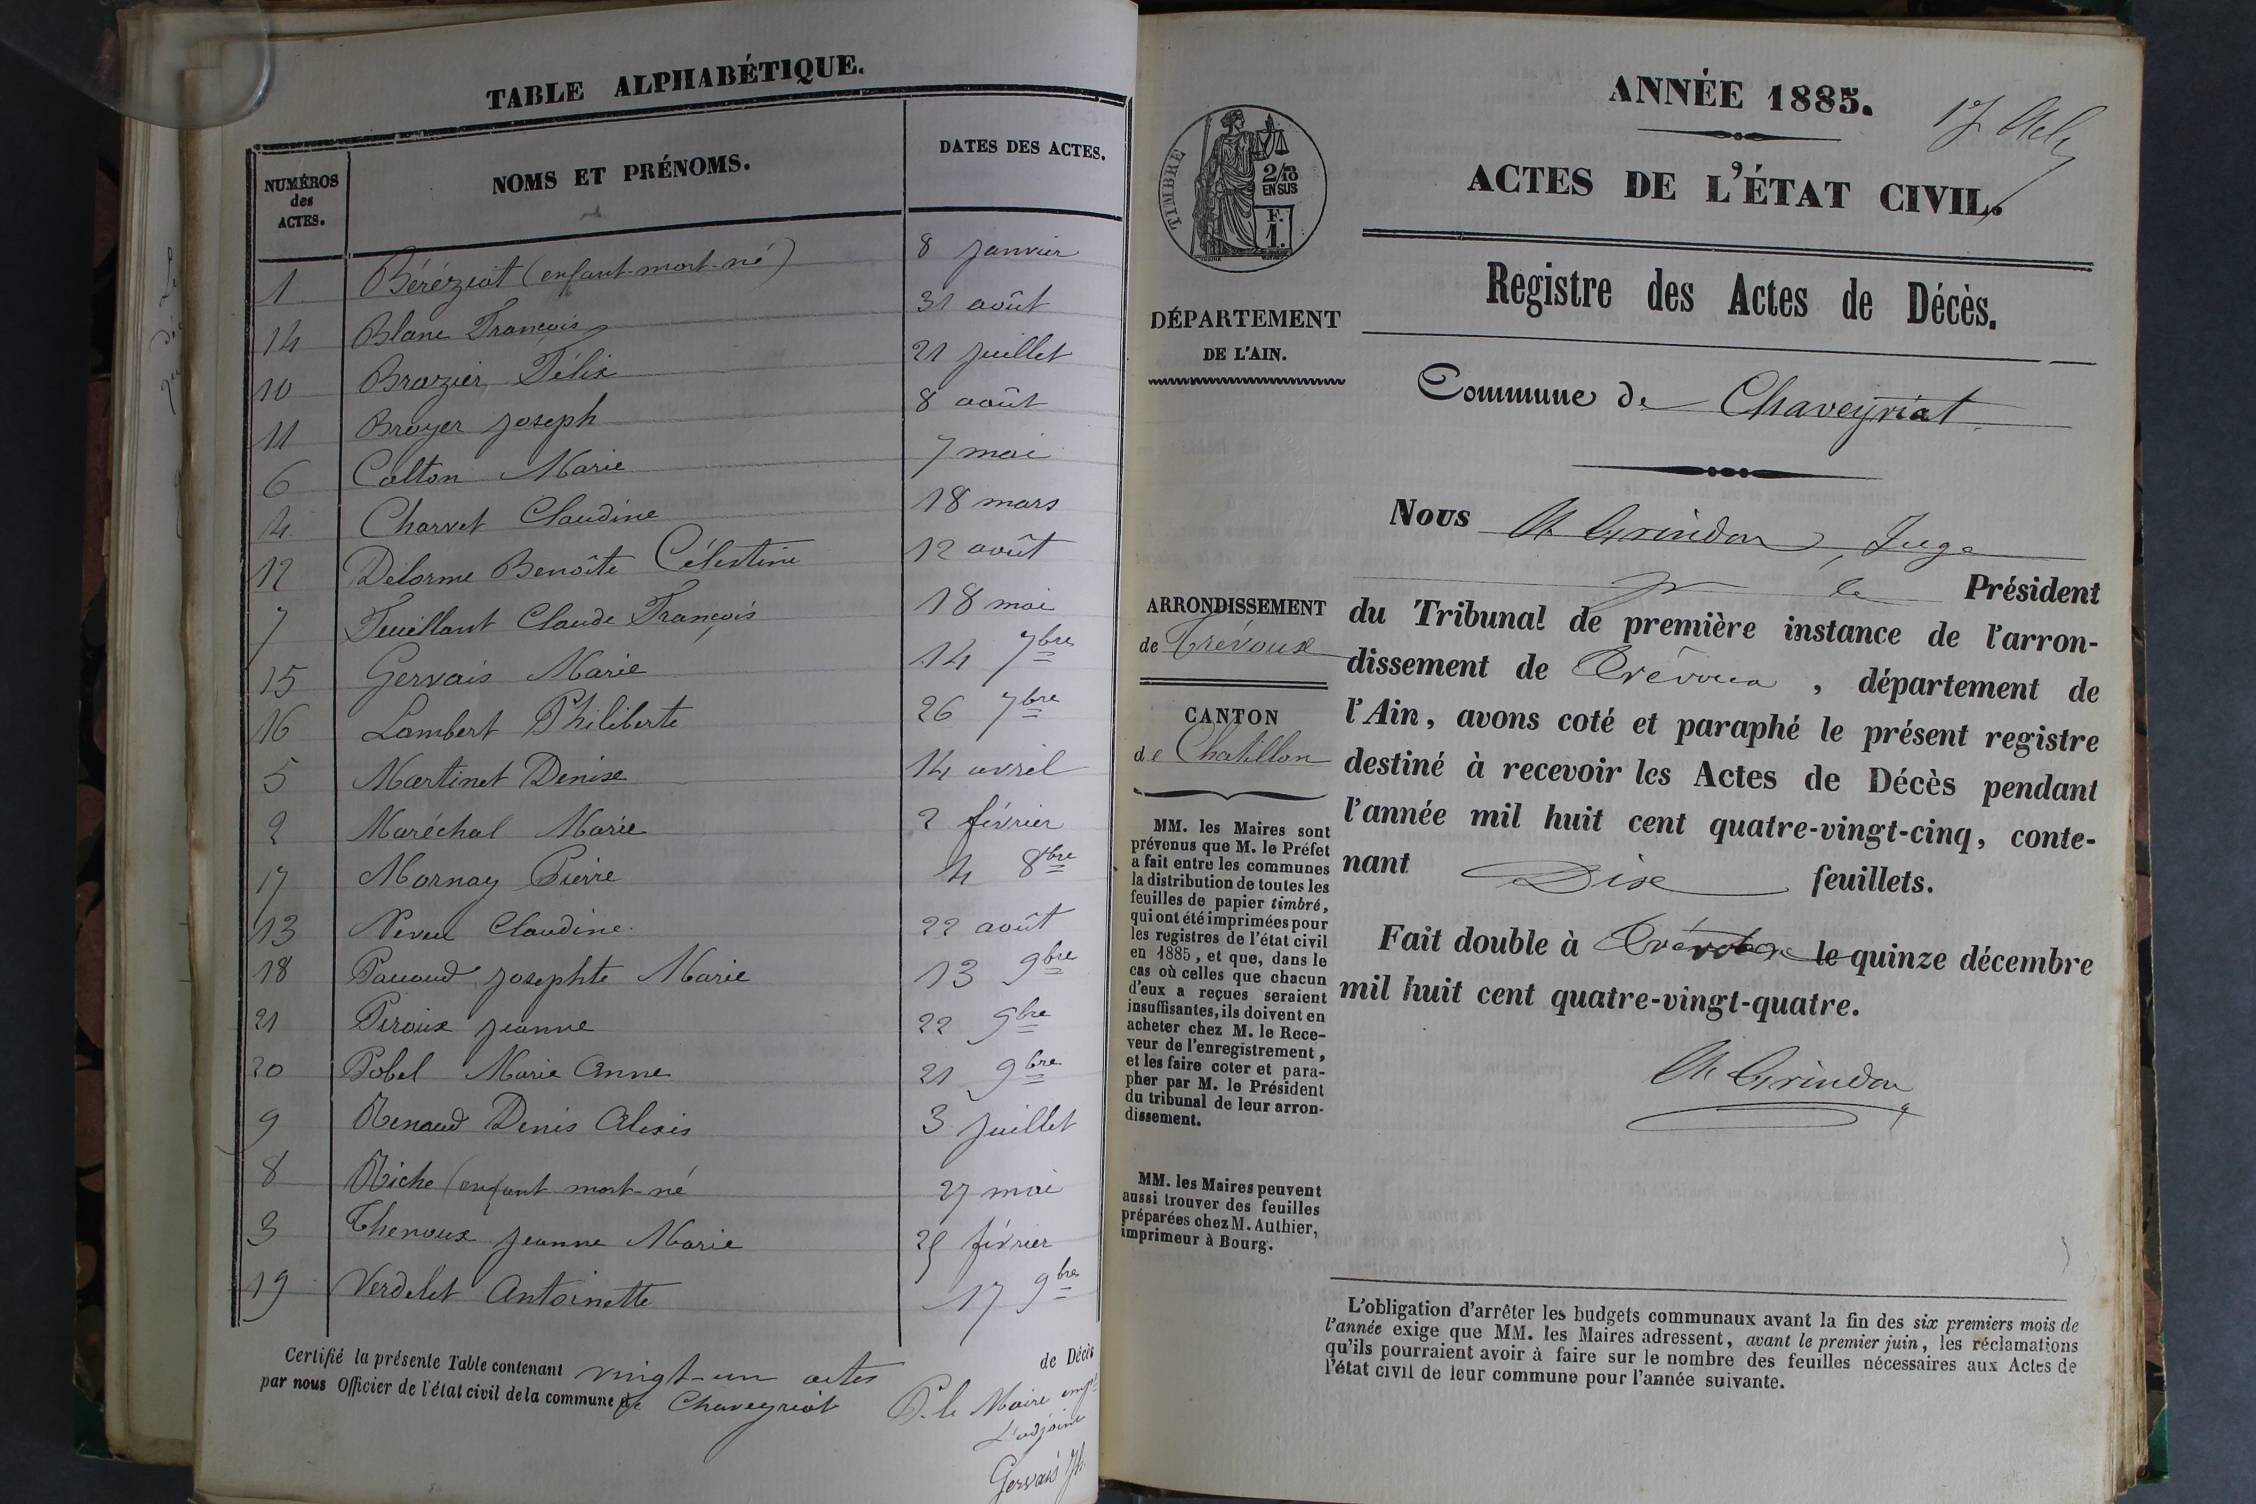 TABLE ALPHABÉTIQUE.
NUMÉROS des ACTES.
NOMS ET PRÉNOMS.
DATES DES ACTES.
1 Béréziat (enfant-mort-né) 8 janvier
14 Blanc François 31 août
10 Brazier Félix 21 juillet
11 Broyer Joseph 8 août
6 Calton Marie 7 mai
4 Charvet Claudine 18 mars
12 Delorme Benoîte Célestine 12 août
7 Feuillant Claude François 18 mai
15 Gervais Marie 14 7bre
16 Lambert Philiberte 26 7bre
5 Martinet Denise 14 avril
2 Maréchal Marie 2 février
17 Mornay Pierre 4 8bre
13 Neveu Claudine. 22 août
18 Josephte Marie 13 9bre
21 Piroux Jeanne 22 9bre
20 Pobel Marie Anne 21 9bre
9 Renaud Denis Alexis 3 juillet
8 Riche (enfant mort-né 27 mai
3 Thenoux Jeanne Marie février
19 Verdelet Antoinette 17 9bre
Certifié la présente Table contenant vingt-un actes de Décès
par nous Officier de l'état civil de la commune de Chaveyriat
P. le Maire emp.
L'adjoint
Gervais Jh.
ANNÉE 1885.
17
ACTES DE L'ÉTAT CIVIL.
TIMBRE
2/10
EN SUS
F.
1.
Registre des Actes de Décès.
DÉPARTEMENT
DE L'AIN.
Commune de Chaveyriat
Nous Grindon, Juge
le Président
du Tribunal de première instance de l'arron-
dissement de Trévoux, département de
l'Ain, avons coté et paraphé le présent registre
destiné à recevoir les Actes de Décès pendant
l'année mil huit cent quatre-vingt-cinq, conte-
nant Dix feuillets.
Fait double à Trévoux le quinze décembre
mil huit cent quatre-vingt-quatre.
Grindon
ARRONDISSEMENT
de Trévoux
CANTON
de Chatillon
MM. les Maires sont
prévenus que M. le Préfet
a fait entre les communes
la distribution de toutes les
feuilles de papier timbré,
qui ont été imprimées pour
les registres de l'état civil
en 1885, et que, dans le
cas où celles que chacun
d'eux a reçues seraient
insuffisantes, ils doivent en
acheter chez M. le Rece-
veur de l'enregistrement,
et les faire coter et para-
pher par M. le Président
du tribunal de leur arron-
dissement.
MM. les Maires peuvent
aussi trouver des feuilles
préparées chez M. Authier,
imprimeur à Bourg.
L'obligation d'arrêter les budgets communaux avant la fin des six premiers mois de
l'année exige que MM. les Maires adressent, avant le premier juin, les réclamations
qu'ils pourraient avoir à faire sur le nombre des feuilles nécessaires aux Actes de
l'état civil de leur commune pour l'année suivante.